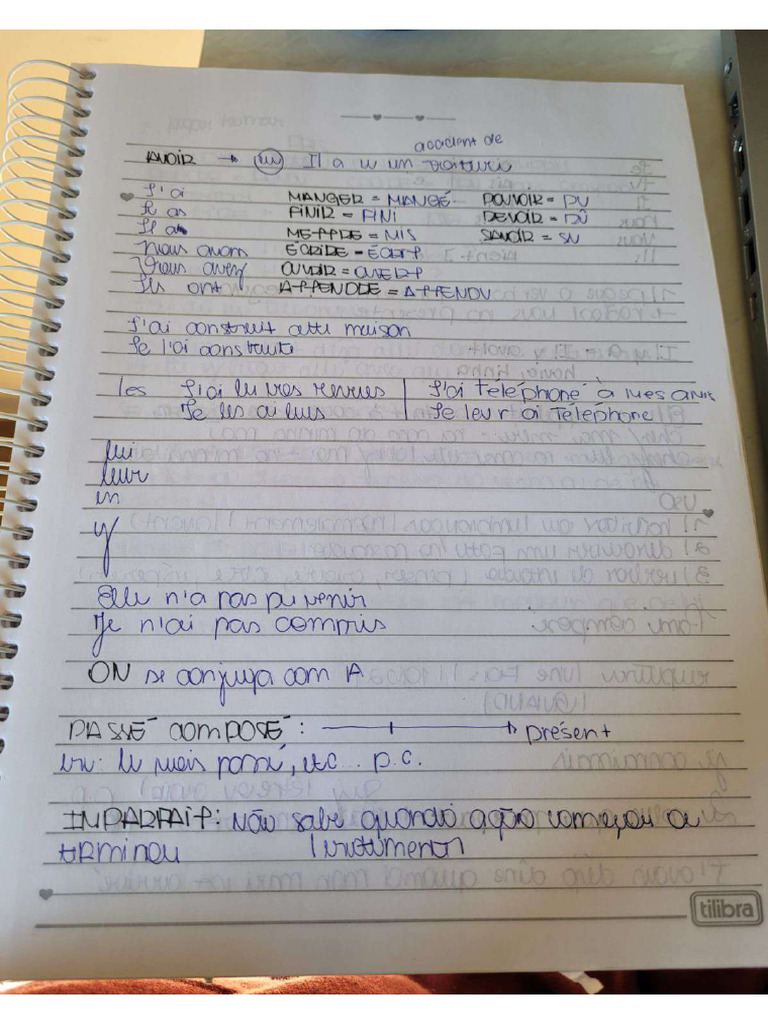 accident de
AVOIR → eu Il a eu un voiture
J'ai MANGER = MANGÉ POUVOIR = PU
Tu as FINIR = FINI DEVOIR = DÛ
Il a METTRE = MIS SAVOIR = SU
Nous avons ÉCRIRE = ÉCRIT
Vous avez OUVRIR = OUVERT
Ils ont APPENDRE = APPENDU
J'ai construit cette maison
Je l'ai construite
les J'ai lu vos revues | J'ai téléphoné à mes amis
Je les ai lues Je leur ai téléphoné
lui
leur
en
y
Elle n'a pas pu venir
Je n'ai pas compris
ON se conjuga com A
PASSÉ COMPOSÉ: présent
ex: le mois passé, etc... p.c.
IMPARFAIT: não sabe quando ação começou e
terminou
tilibra